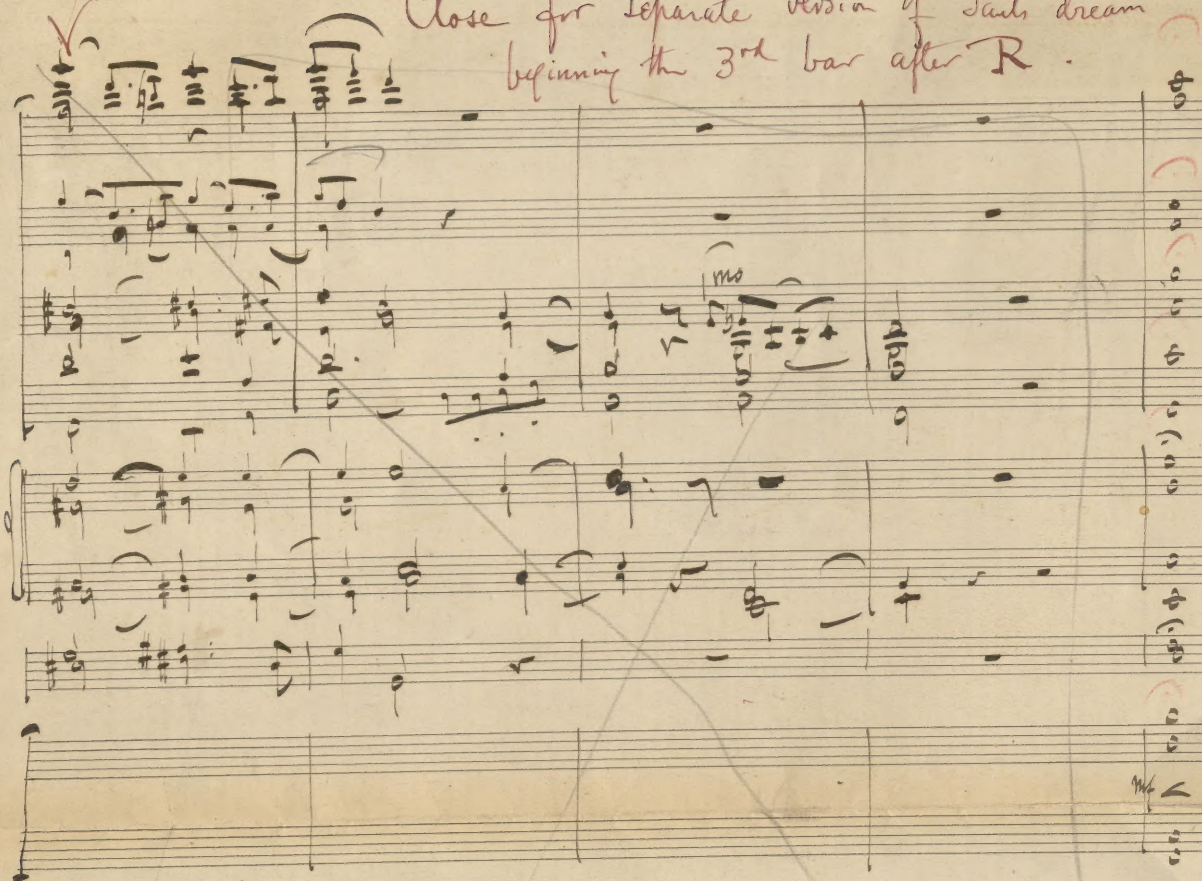 Close for separate version of Sauls dream
beginning the 3rd bar after R.
1mo
mf